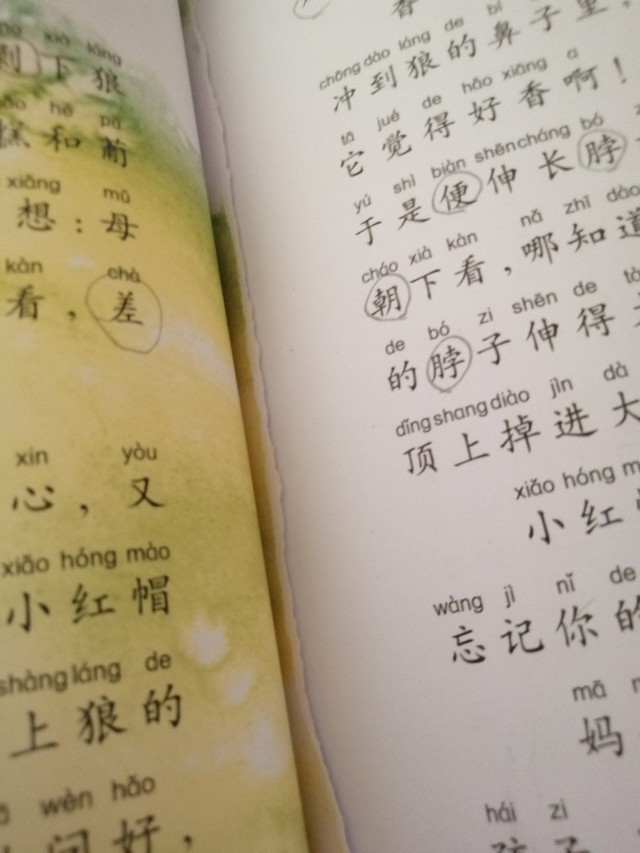 xià láng
剥下狼
hé pú
糕和葡
xiǎng mǔ
想：母
kàn chà
看，差
xīn yòu
心，又
xiǎo hóng mào
小红帽
shàng láng de
上狼的
wèn hǎo
问好，
chōng dào láng de bí
冲到狼的鼻子里，
tā jué de hǎo xiāng a
它觉得好香啊！
yú shì biàn shēn cháng bó
于是便伸长脖
cháo xià kàn nǎ zhī dào
朝下看，哪知道
de bó zi shēn de
的脖子伸得
dǐng shang diào jìn dà
顶上掉进大
xiǎo hóng
小红
wàng jì nǐ de
忘记你的
mā
妈
hái zi
孩子